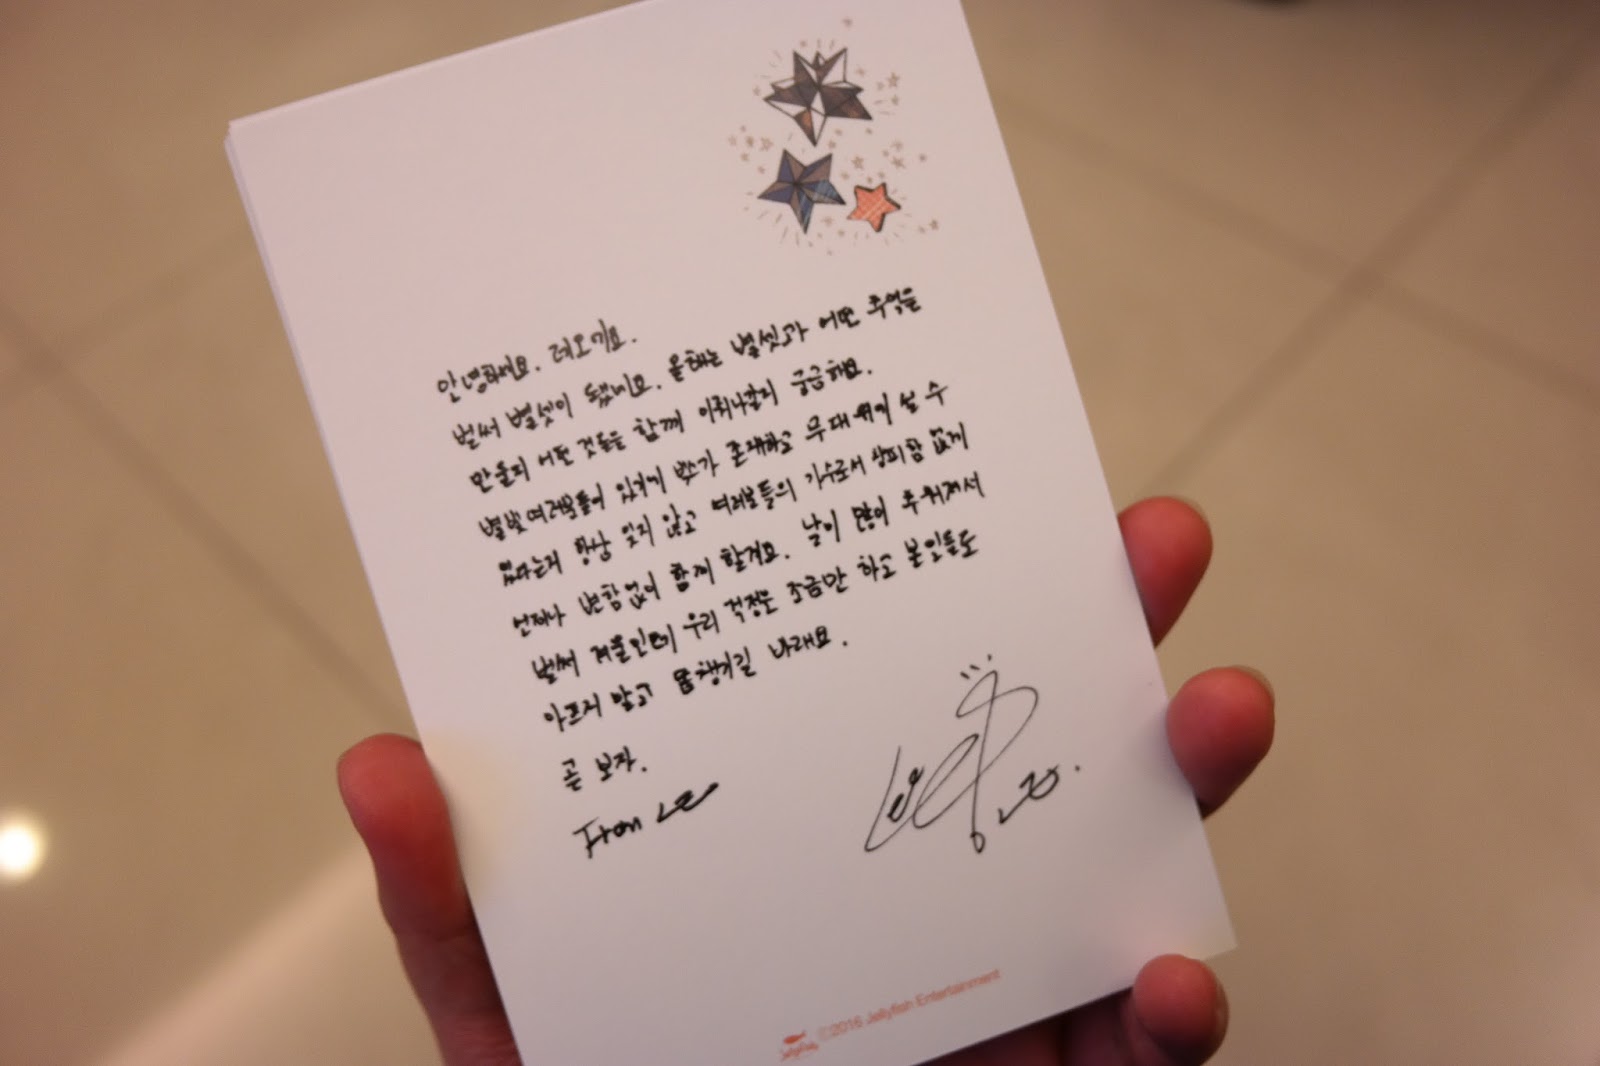 안녕하세요. 레오기요.
벌써 별셋이 됐네요. 올해는 별셋과 어떤 추억을
만들지 어떤 것들을 함께 이뤄나갈지 궁금해요.
별빛여러분들이 있기에 빅스가 존재하고 무대위에 설 수
있다는지 항상 잊지 않고 여러분들의 가수로서 창피함 없게
언제나 변함없이 함께 할게요. 날이 많이 추워져서
벌써 겨울인데 우리 걱정은 조금만 하고 본인들도
아프지 말고 몸챙기길 바래요.
곧 보자.
From LEO
LEO.
jellyfish ©2016 Jellyfish Entertainment